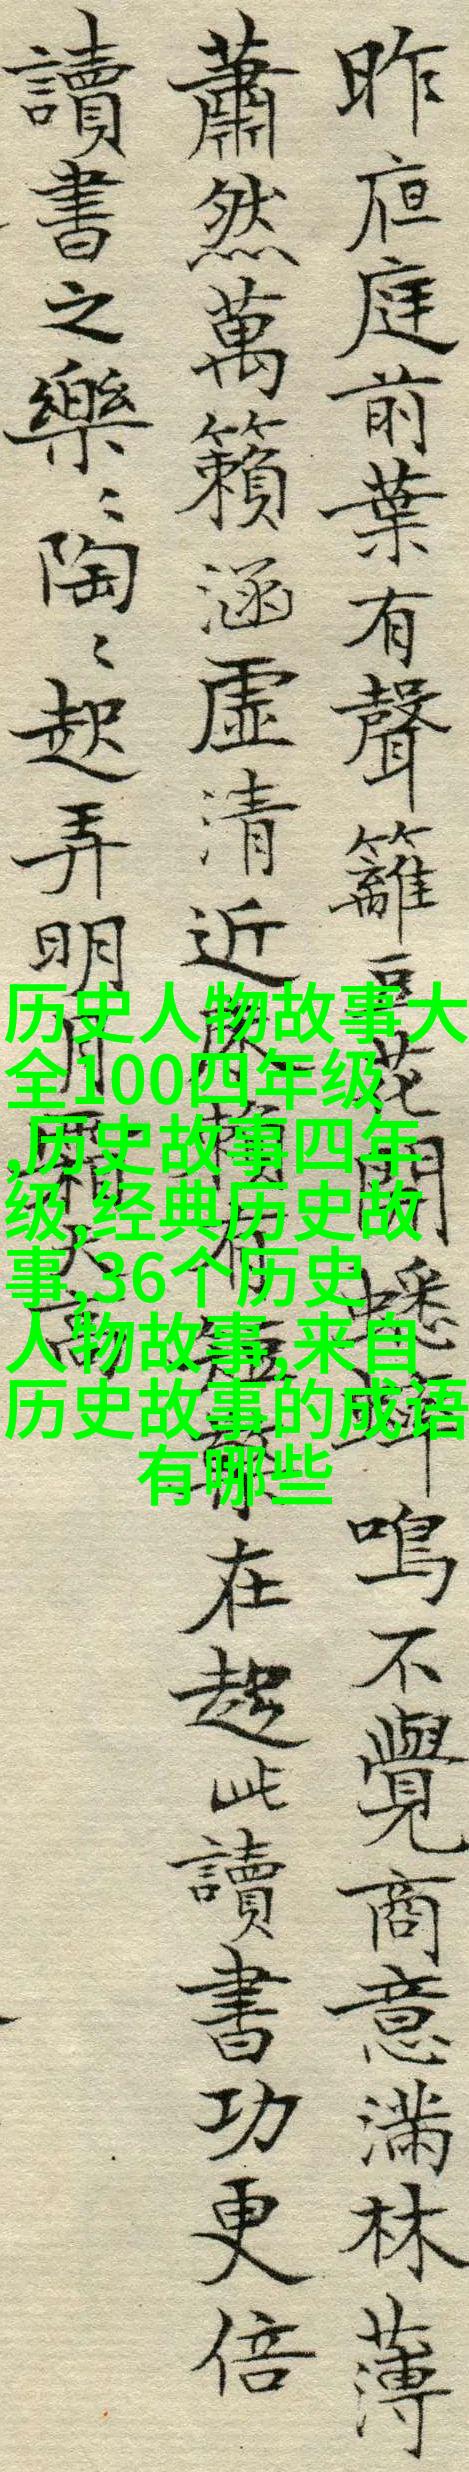 昨夜庭前葉有聲籬豆花開蟋蟀鳴不覺商意滿林薄
蕭然萬籟涵虛清近床賴有短檠在起此讀書功更倍
讀書之樂〻陶〻起弄明月霜天高
历史人物故事大
全100四年级
,历史故事四年
级,经典历史故
事,36个历史
人物故事,来自
历史故事的成语
有哪些